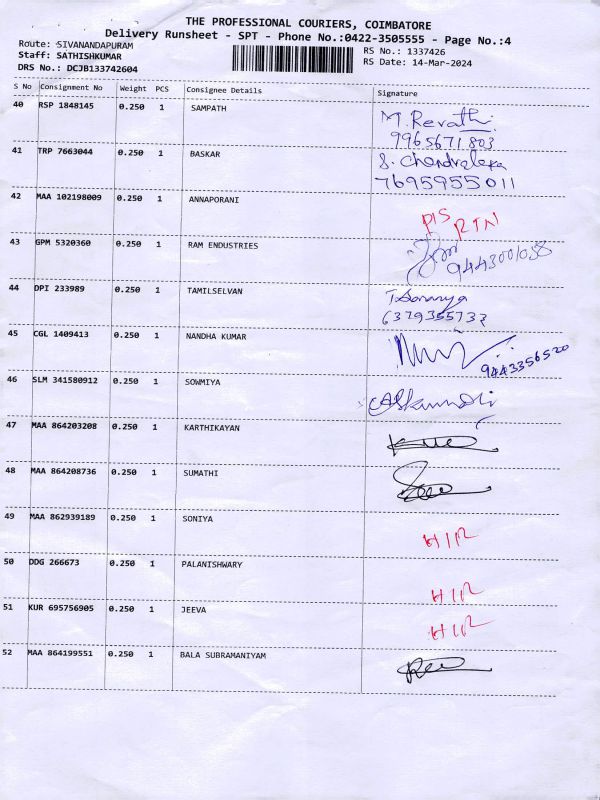 THE PROFESSIONAL COURIERS, COIMBATORE
Delivery Runsheet - SPT - Phone No.:0422-3505555 - Page No.:4
Route: SIVANANDAPURAM
RS No.: 1337426
Staff: SATHISHKUMAR
RS Date: 14-Mar-2024
DRS No.: DCJB133742604
S No Consignment No Weight PCS Consignee Details Signature
40 RSP 1848145 0.250 1 SAMPATH M. Revathi
9965671803
41 TRP 7663044 0.250 1 BASKAR S. Chandraleka
7695955011
42 MAA 102198009 0.250 1 ANNAPORANI
RTN
43 GPM 5320360 0.250 1 RAM ENDUSTRIES
9443001038
44 DPI 233989 0.250 1 TAMILSELVAN T. Saranya
45 CGL 1409413 0.250 1 NANDHA KUMAR
9443356520
46 SLM 341580912 0.250 1 SOWMIYA
47 MAA 864203208 0.250 1 KARTHIKAYAN
48 MAA 864208736 0.250 1 SUMATHI
49 MAA 862939189 0.250 1 SONIYA
50 DDG 266673 0.250 1 PALANISHWARY
51 KUR 695756905 0.250 1 JEEVA
52 MAA 864199551 0.250 1 BALA SUBRAMANIYAM